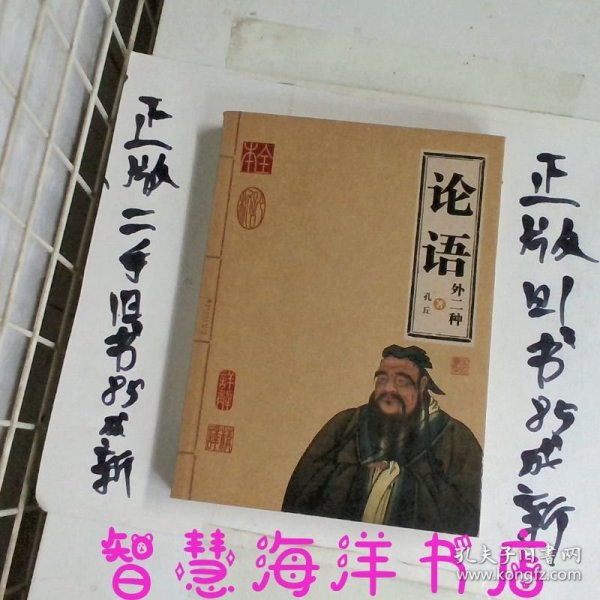 正版二手旧书85成新
全本
论语
外二种
孔丘 著
正版旧书85成新
智慧海洋书店
孔夫子旧书网
www.kongfz.com